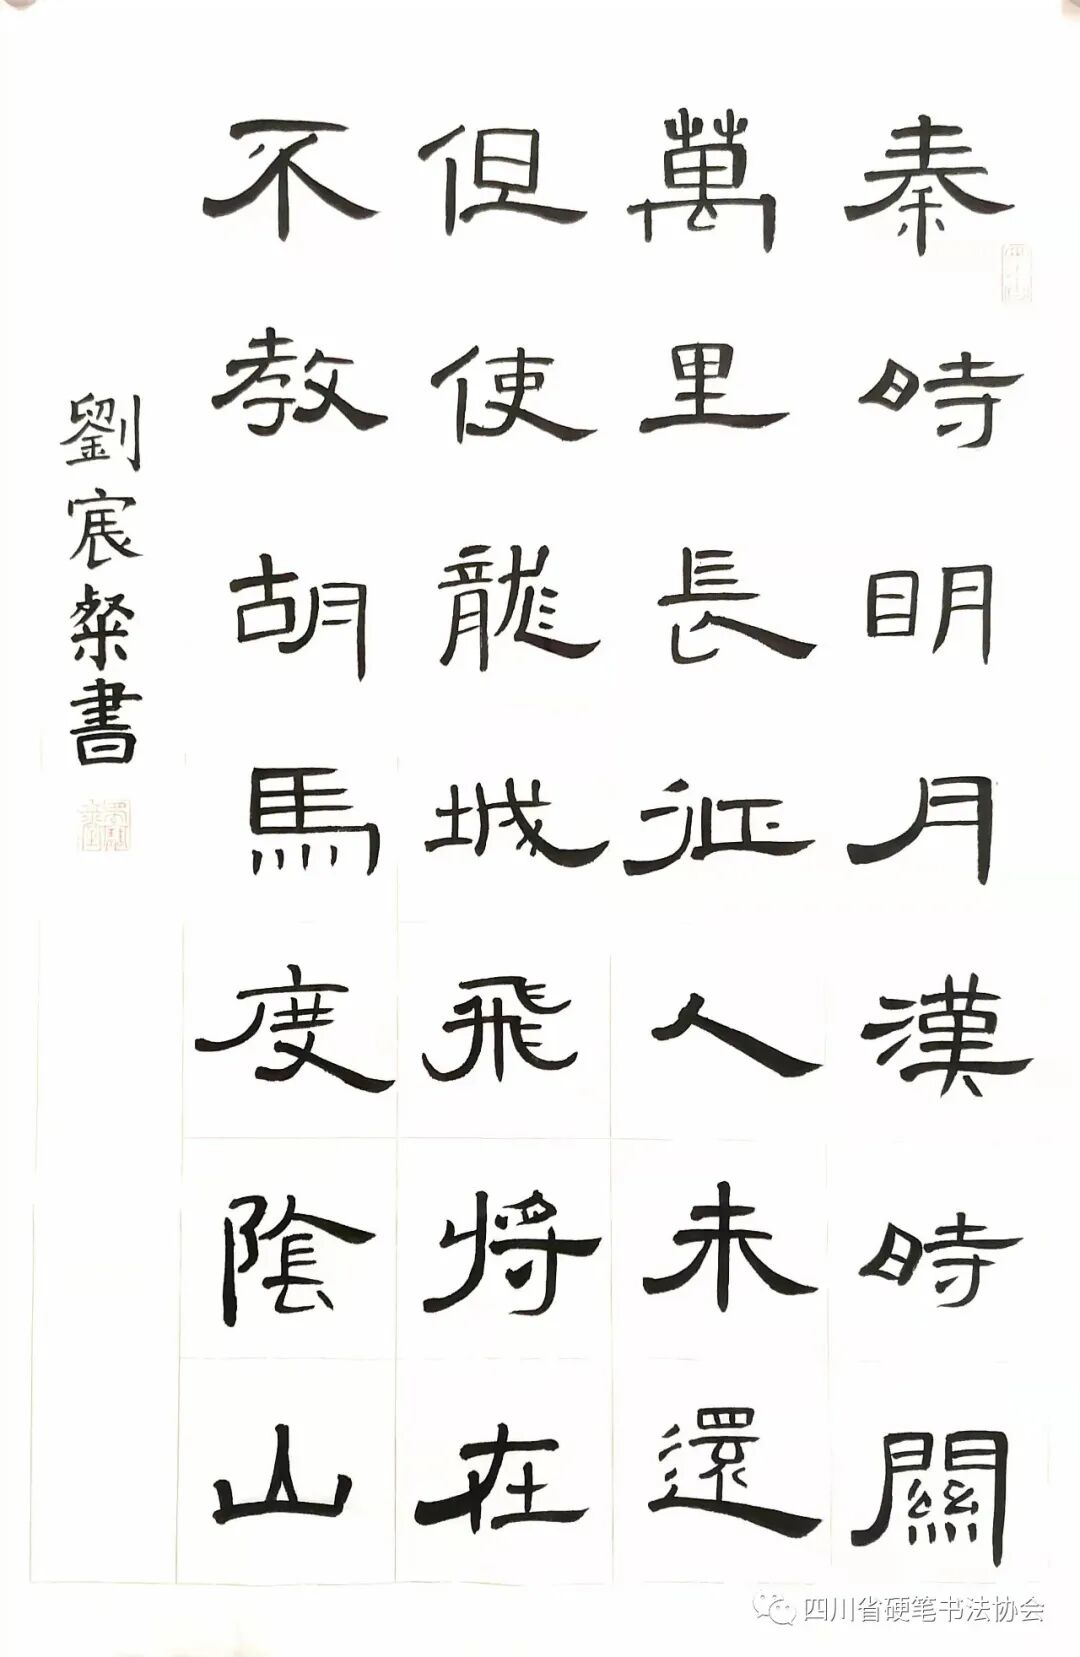 秦時明月漢時關
萬里長征人未還
但使龍城飛將在
不教胡馬度陰山
劉宸粲書
四川省硬笔书法协会